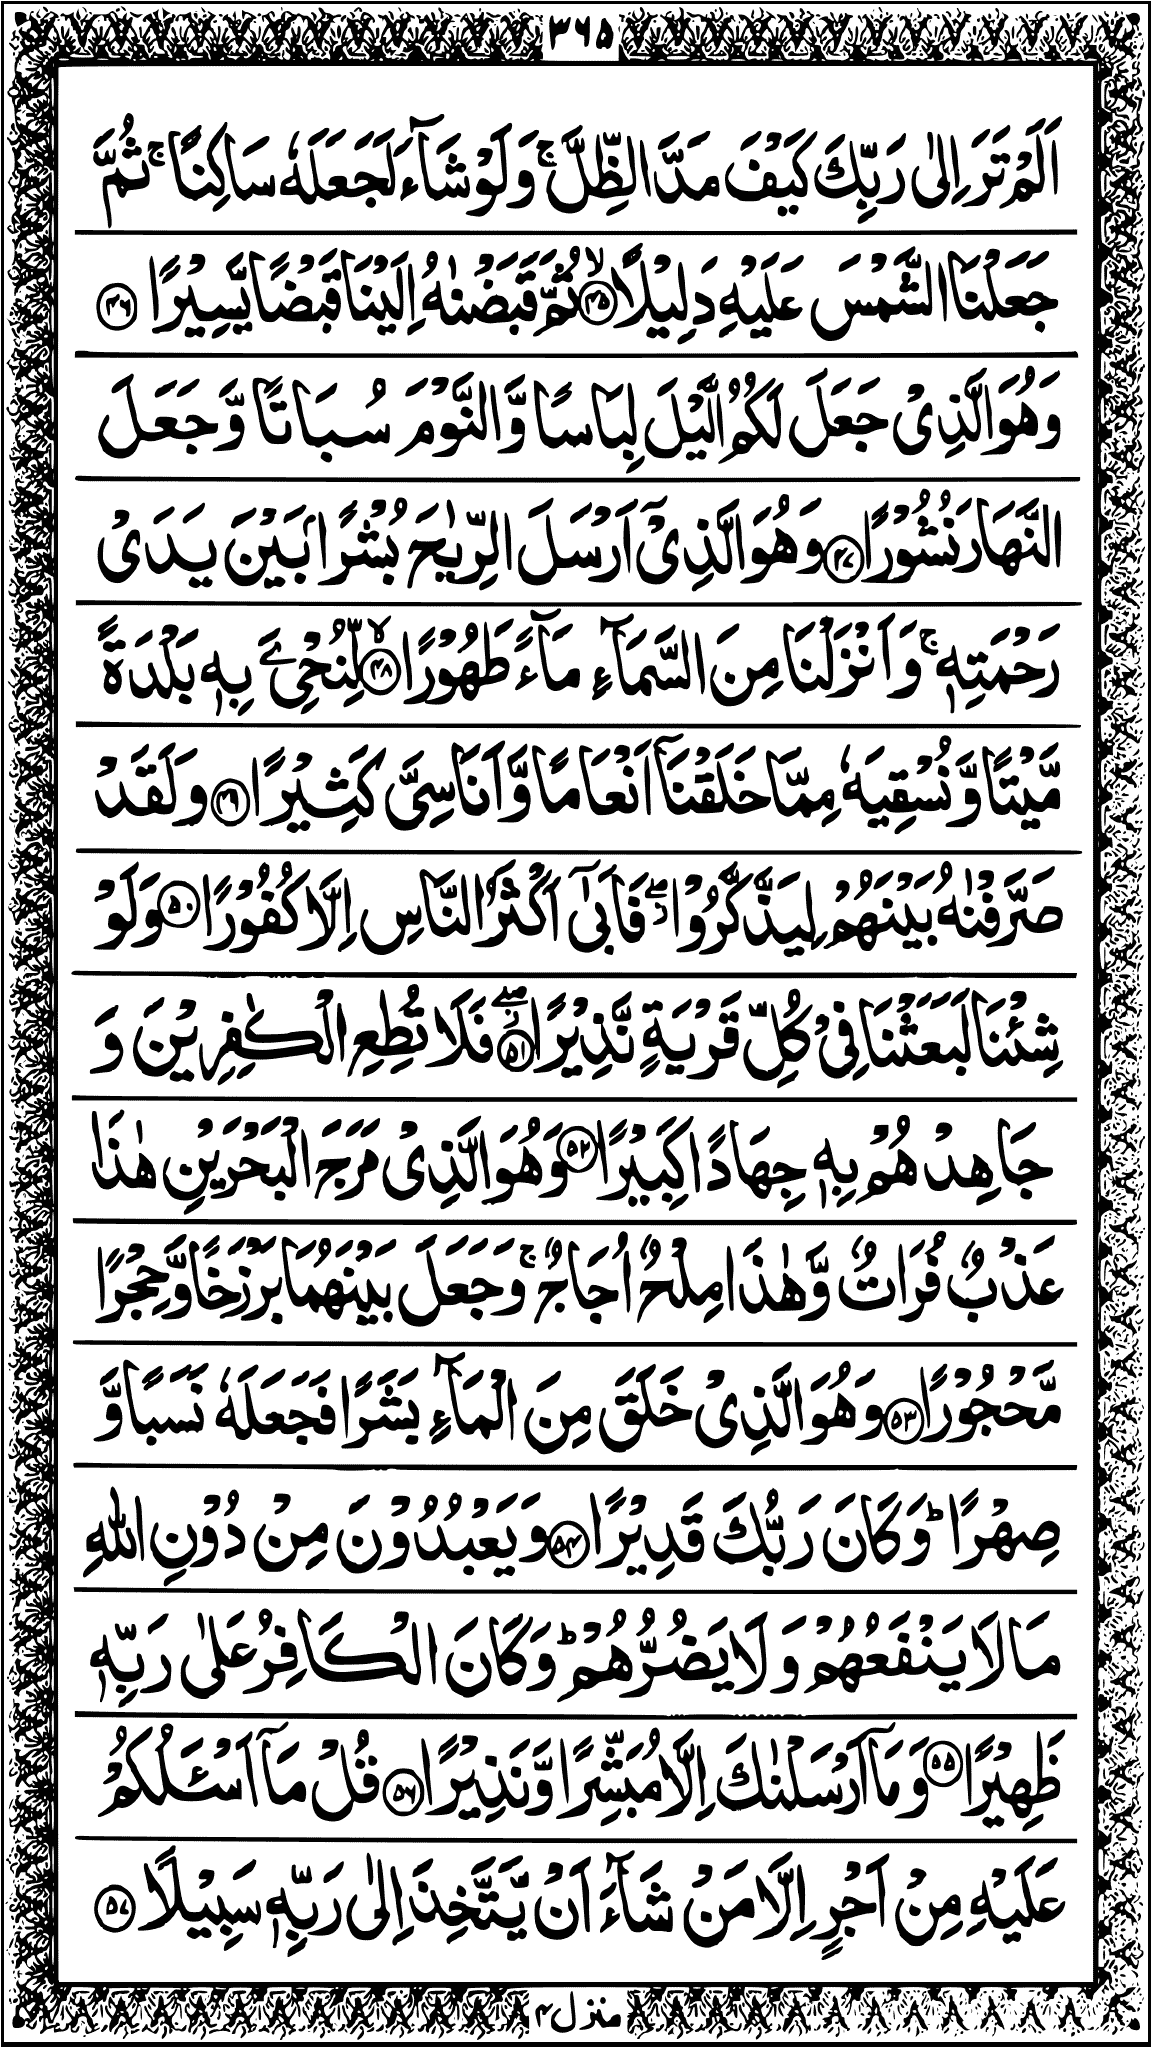 ۳۶۵
اَلَمْ تَرَ اِلٰی رَبِّكَ كَیْفَ مَدَّ الظِّلَّ ۚ وَ لَوْ شَآءَ لَجَعَلَهٗ سَاكِنًا ۚ ثُمَّ
جَعَلْنَا الشَّمْسَ عَلَیْهِ دَلِیْلًا ۙ۝۴۵ ثُمَّ قَبَضْنٰهُ اِلَیْنَا قَبْضًا یَّسِیْرًا ۝۴۶
وَ هُوَ الَّذِیْ جَعَلَ لَكُمُ الَّیْلَ لِبَاسًا وَّ النَّوْمَ سُبَاتًا وَّ جَعَلَ
النَّهَارَ نُشُوْرًا ۝۴۷ وَ هُوَ الَّذِیْۤ اَرْسَلَ الرِّیٰحَ بُشْرًۢا بَیْنَ یَدَیْ
رَحْمَتِهٖ ۚ وَ اَنْزَلْنَا مِنَ السَّمَآءِ مَآءً طَهُوْرًا ۙ۝۴۸ لِّنُحْیِ َۧ بِهٖ بَلْدَةً
مَّیْتًا وَّ نُسْقِیَهٗ مِمَّا خَلَقْنَاۤ اَنْعَامًا وَّ اَنَاسِیَّ كَثِیْرًا ۝۴۹ وَ لَقَدْ
صَرَّفْنٰهُ بَیْنَهُمْ لِیَذَّكَّرُوْا ۖؗ فَاَبٰۤی اَكْثَرُ النَّاسِ اِلَّا كُفُوْرًا ۝۵۰ وَ لَوْ
شِئْنَا لَبَعَثْنَا فِیْ كُلِّ قَرْیَةٍ نَّذِیْرًا ؗۖ۝۵۱ فَلَا تُطِعِ الْكٰفِرِیْنَ وَ
جَاهِدْهُمْ بِهٖ جِهَادًا كَبِیْرًا ۝۵۲ وَ هُوَ الَّذِیْ مَرَجَ الْبَحْرَیْنِ هٰذَا
عَذْبٌ فُرَاتٌ وَّ هٰذَا مِلْحٌ اُجَاجٌ ۚ وَ جَعَلَ بَیْنَهُمَا بَرْزَخًا وَّ حِجْرًا
مَّحْجُوْرًا ۝۵۳ وَ هُوَ الَّذِیْ خَلَقَ مِنَ الْمَآءِ بَشَرًا فَجَعَلَهٗ نَسَبًا وَّ
صِهْرًا ؕ وَ كَانَ رَبُّكَ قَدِیْرًا ۝۵۴ وَ یَعْبُدُوْنَ مِنْ دُوْنِ اللّٰهِ
مَا لَا یَنْفَعُهُمْ وَ لَا یَضُرُّهُمْ ؕ وَ كَانَ الْكَافِرُ عَلٰی رَبِّهٖ
ظَهِیْرًا ۝۵۵ وَ مَاۤ اَرْسَلْنٰكَ اِلَّا مُبَشِّرًا وَّ نَذِیْرًا ۝۵۶ قُلْ مَاۤ اَسْـَٔلُكُمْ
عَلَیْهِ مِنْ اَجْرٍ اِلَّا مَنْ شَآءَ اَنْ یَّتَّخِذَ اِلٰی رَبِّهٖ سَبِیْلًا ۝۵۷
منزل ۴